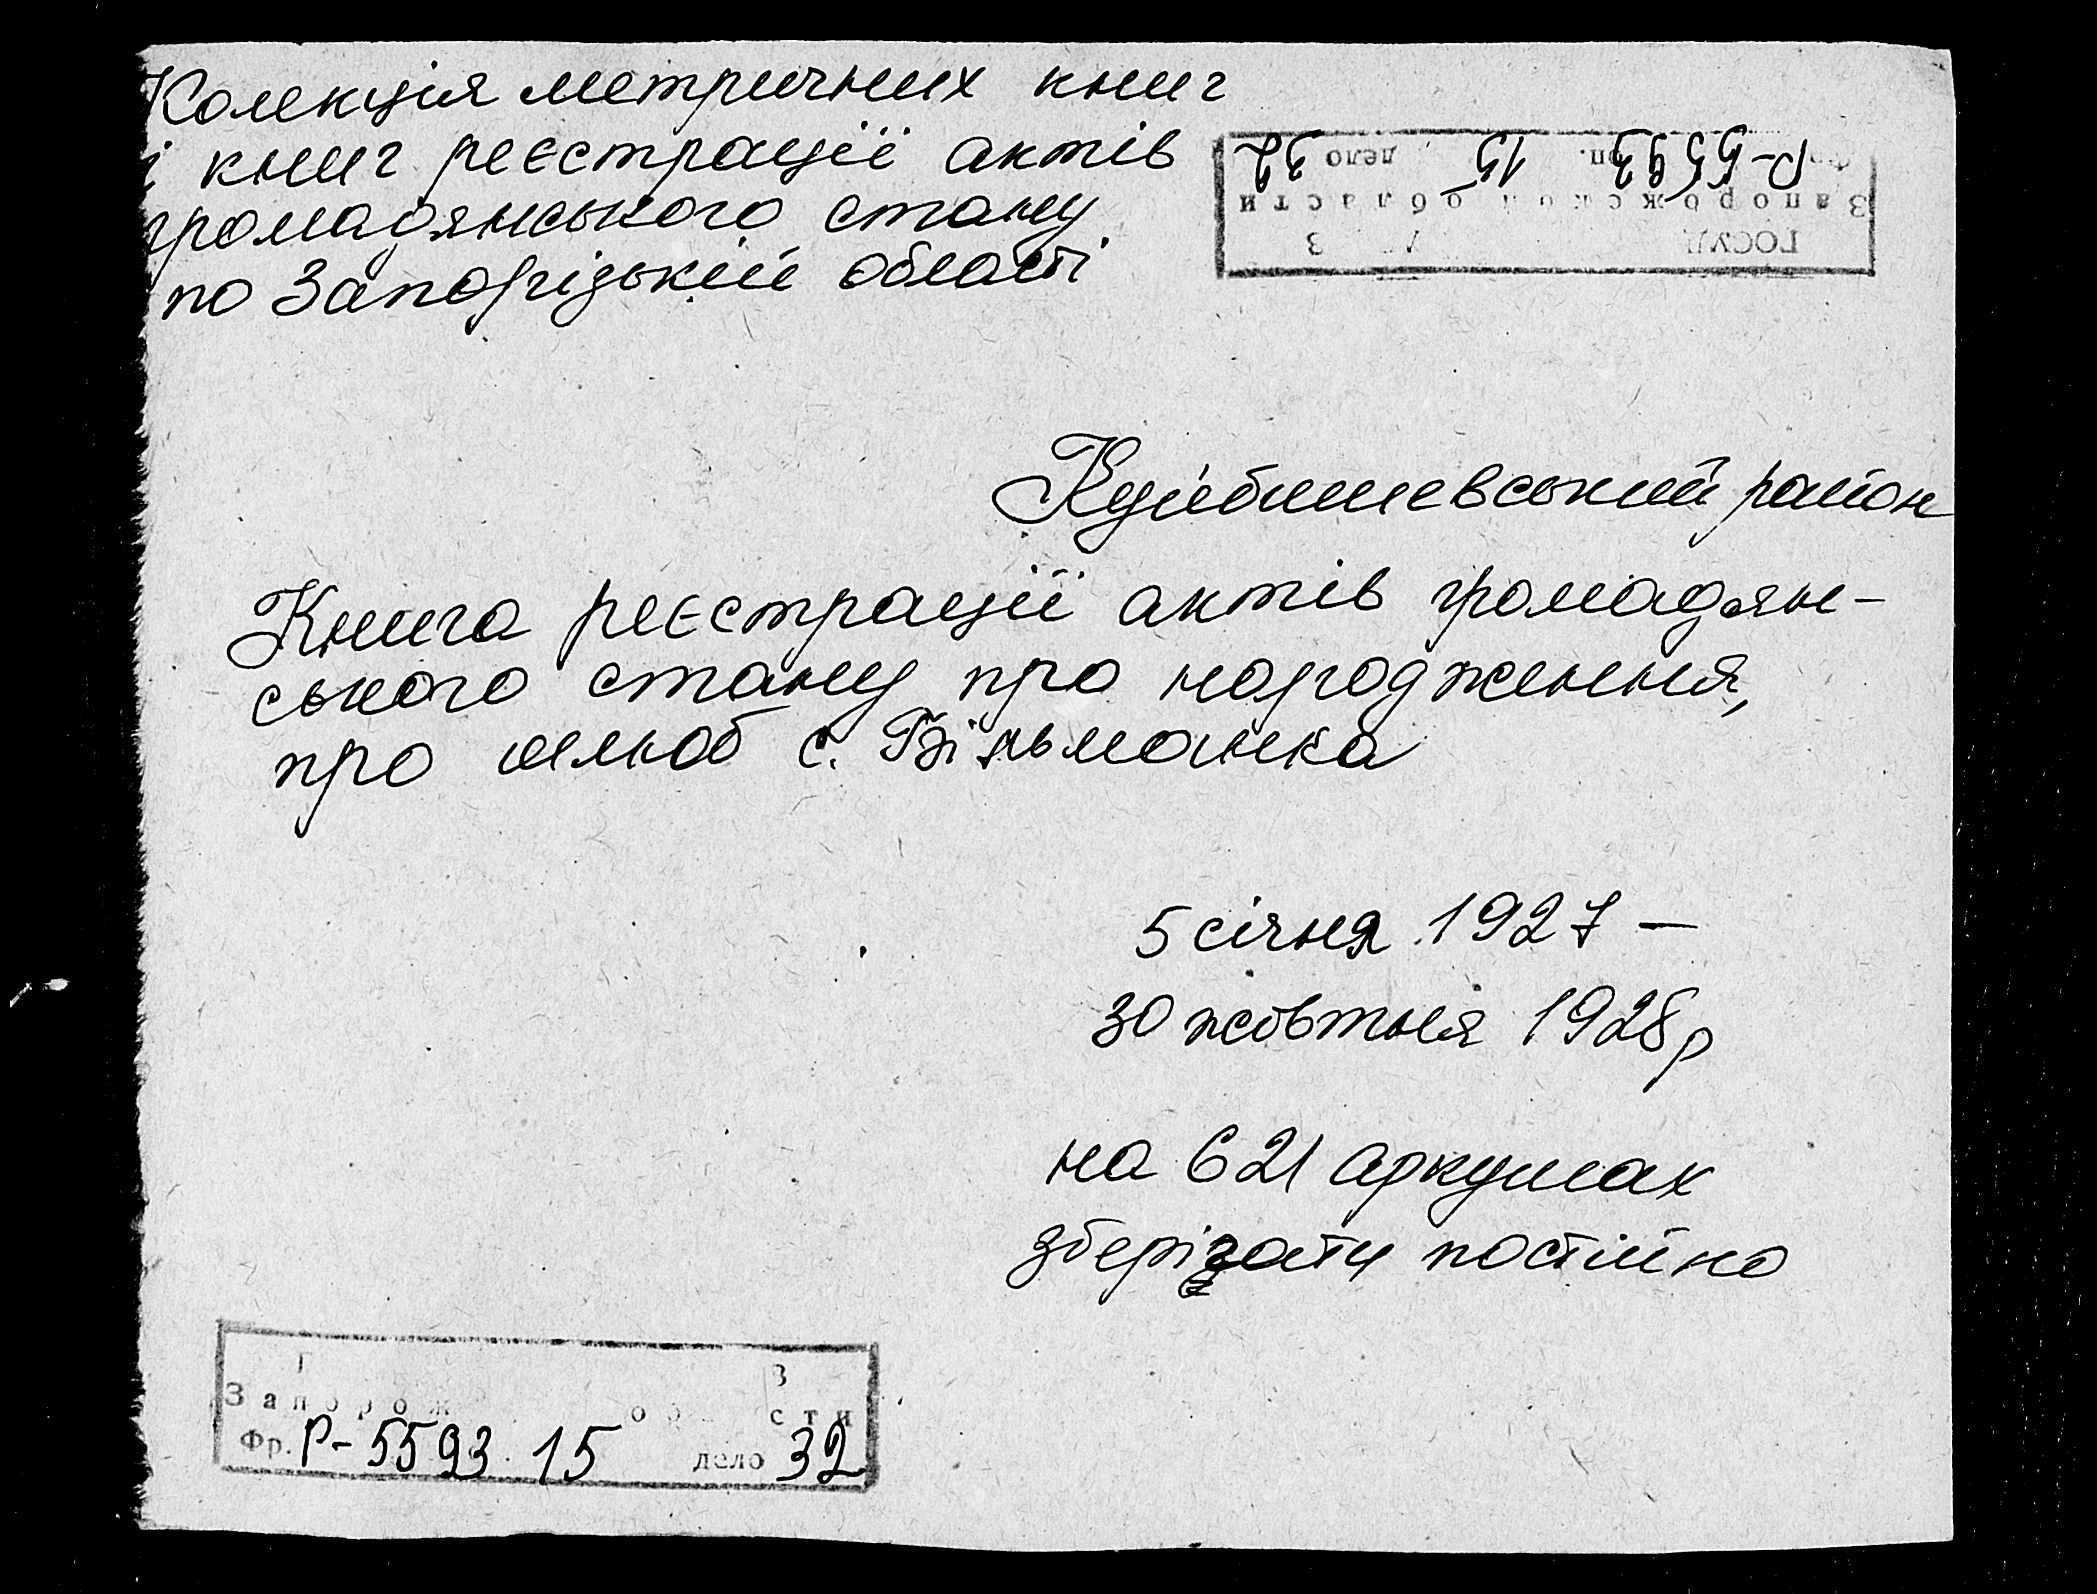 Колекція метричних книг
і книг реєстрації актів
громадянського стану
по Запорізькій області
Р-5593 оп. 15 дело 32
Запорожской области
Куйбишевський район
Книга реєстрації актів громадян-
ського стану про народження,
про шлюб с. Вільманка
5 січня 1927 —
30 жовтня 1928р
на 621 аркушах
зберігати постійно
Запорож о сти
Фр. Р-5593 15 дело 32